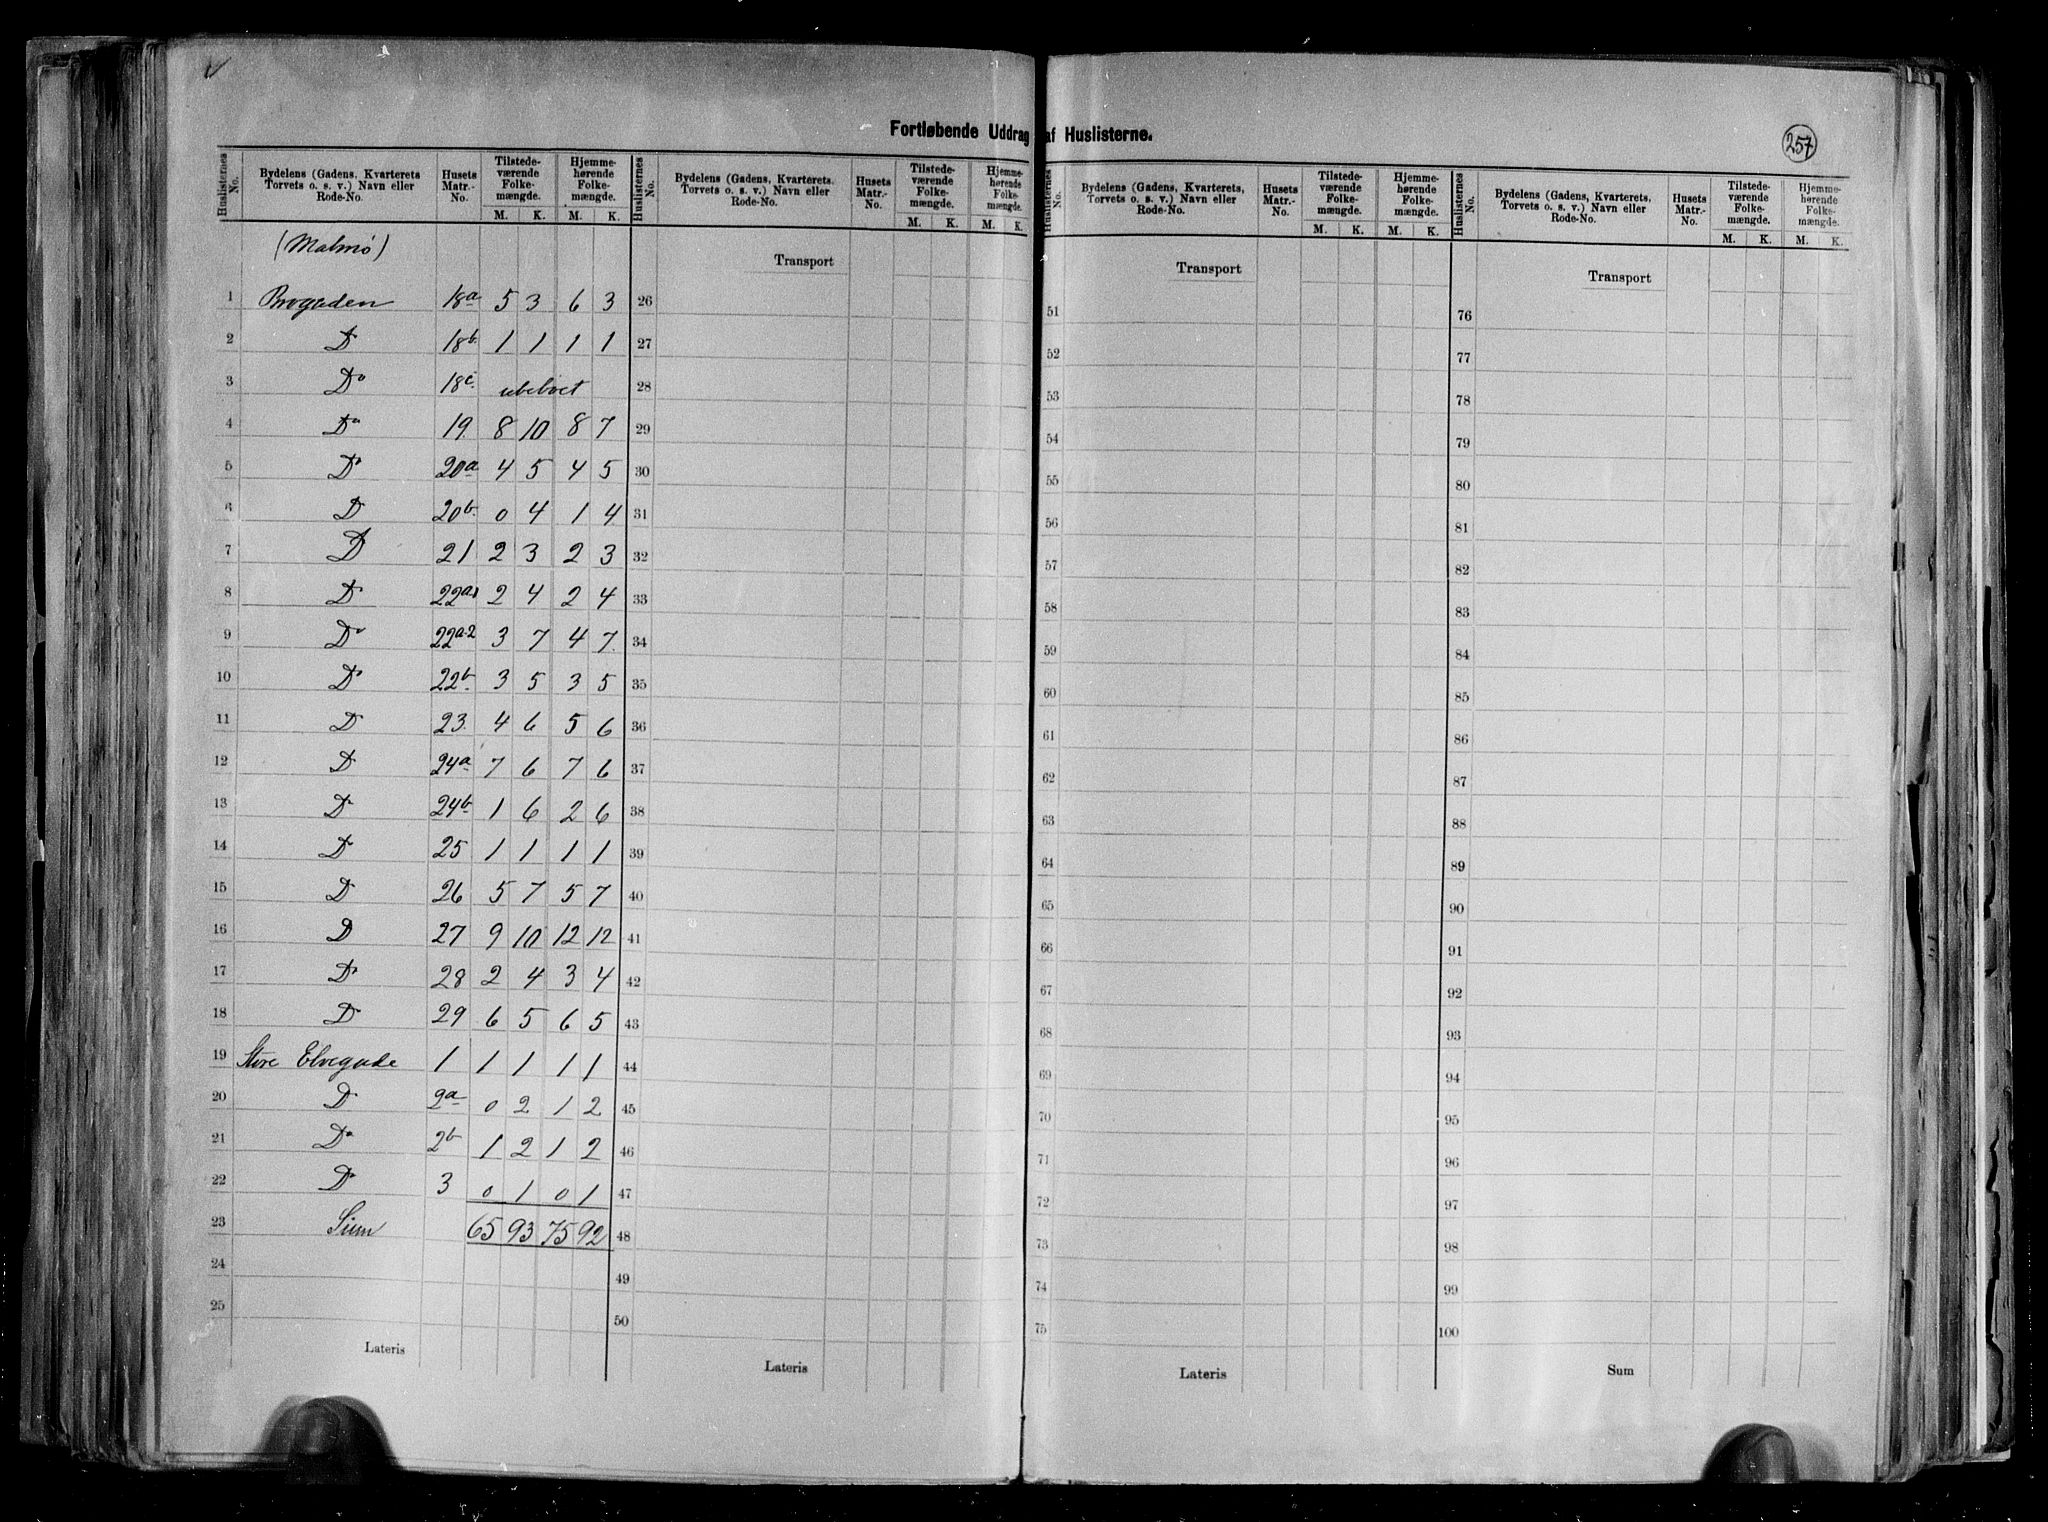 Fortløbende Uddrag af Huslisterne.
257
Huslisternes No. | Bydelens (Gadens, Kvarterets Torvets o. s. v.) Navn eller Rode-No. | Husets Matr.-No. | Tilstedeværende Folkemængde. M. K. | Hjemmehørende Folkemængde. M. K.
(Malmø)
1 Brogaden 18a 5 3 6 3
2 Do 18b 1 1 1 1
3 Do 18c ubeboet
4 Do 19 8 10 8 7
5 Do 20a 4 5 4 5
6 Do 20b 0 4 1 4
7 Do 21 2 3 2 3
8 Do 22a1 2 4 2 4
9 Do 22a-2 3 7 4 7
10 Do 22b 3 5 3 5
11 Do 23 4 6 5 6
12 Do 24a 7 6 7 6
13 Do 24b 1 6 2 6
14 Do 25 1 1 1 1
15 Do 26 5 7 5 7
16 Do 27 9 10 12 12
17 Do 28 2 4 3 4
18 Do 29 6 5 6 5
19 Store Elvegade 1 1 1 1 1
20 Do 2a 0 2 1 2
21 Do 2b 1 2 1 2
22 Do 3 0 1 0 1
23 Sum 65 93 75 92
24
25
Lateris
Huslisternes No. | Bydelens (Gadens, Kvarterets, Torvets o. s. v.) Navn eller Rode-No. | Husets Matr.-No. | Tilstedeværende Folkemængde. M. K. | Hjemmehørende Folkemængde. M. K.
Transport
26
27
28
29
30
31
32
33
34
35
36
37
38
39
40
41
42
43
44
45
46
47
48
49
50
Lateris
Huslisternes No. | Bydelens (Gadens, Kvarterets, Torvets o. s. v.) Navn eller Rode-No. | Husets Matr.-No. | Tilstedeværende Folkemængde. M. K. | Hjemmehørende Folkemængde. M. K.
Transport
51
52
53
54
55
56
57
58
59
60
61
62
63
64
65
66
67
68
69
70
71
72
73
74
75
Lateris
Huslisternes No. | Bydelens (Gadens, Kvarterets, Torvets o. s. v.) Navn eller Rode-No. | Husets Matr.-No. | Tilstedeværende Folkemængde. M. K. | Hjemmehørende Folkemængde. M. K.
Transport
76
77
78
79
80
81
82
83
84
85
86
87
88
89
90
91
92
93
94
95
96
97
98
99
100
Sum